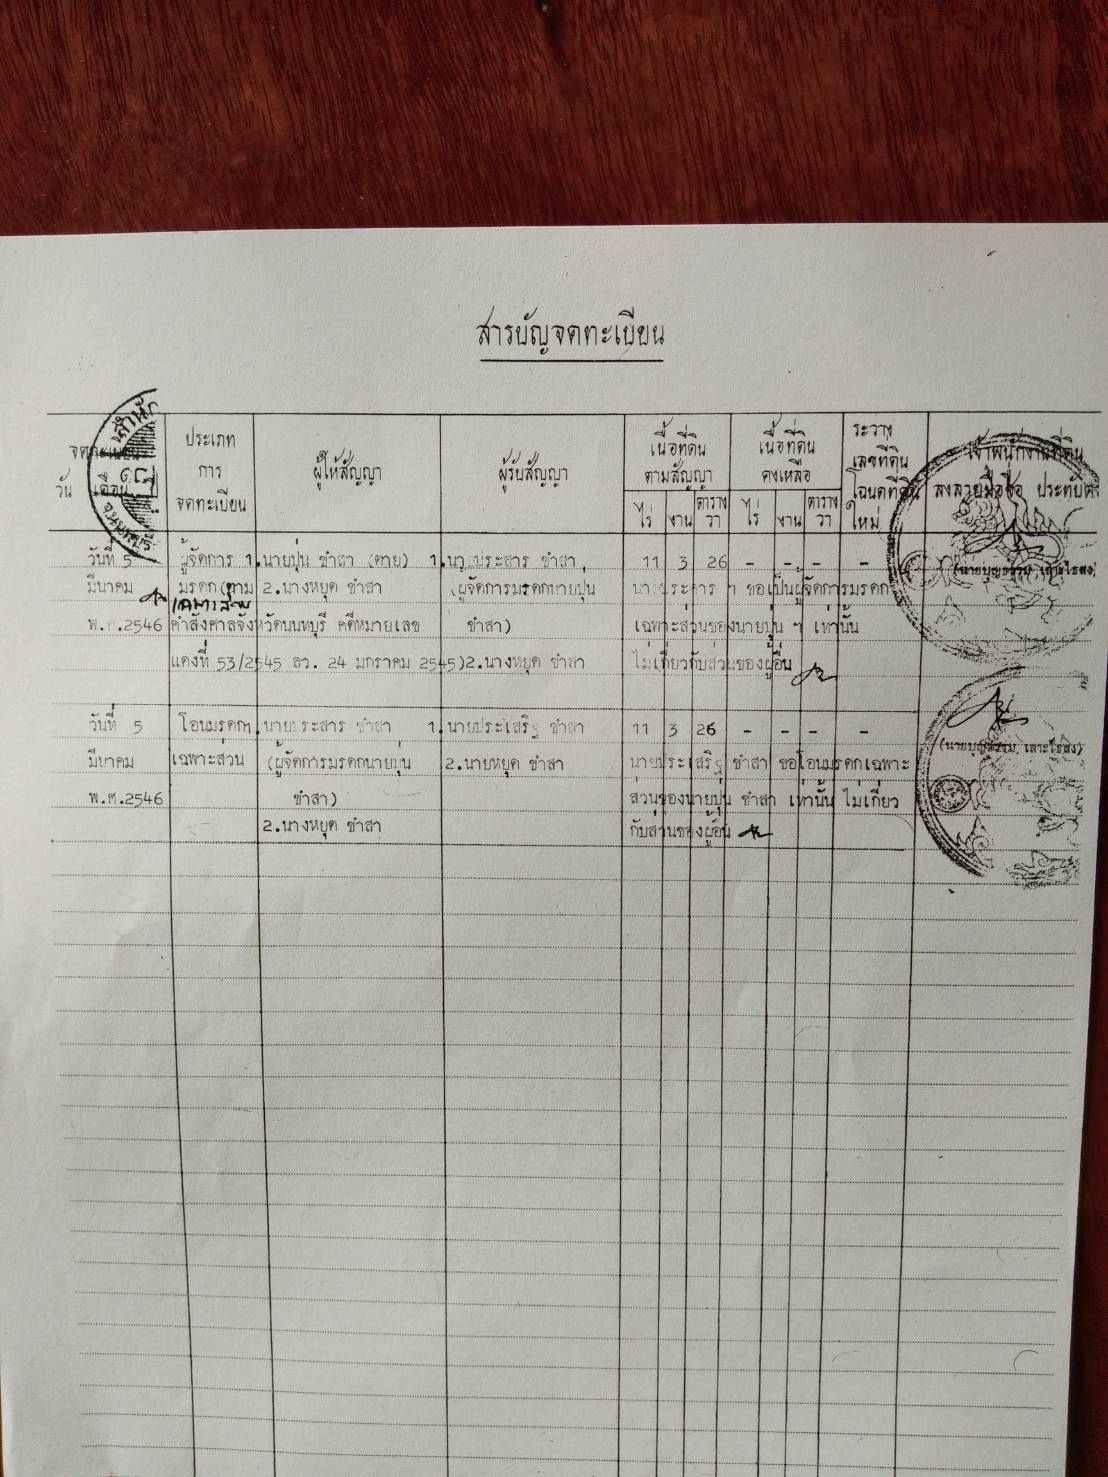 สารบัญจดทะเบียน
จดทะเบียน
วัน เดือน
ประเภท
การ
จดทะเบียน
ผู้ให้สัญญา
ผู้รับสัญญา
เนื้อที่ดิน
ตามสัญญา
ไร่ งาน ตาราง
วา
เนื้อที่ดิน
คงเหลือ
ไร่ งาน ตาราง
วา
ระวาง
เลขที่ดิน
โฉนดที่ดิน
ใหม่
เจ้าพนักงานที่ดิน
ลงลายมือชื่อ ประทับ
สำนัก
วันที่ 5 ผู้จัดการ 1.นายปุ่น ชำสา (ตาย) 1.นายประสาร ชำสา 11 3 26 - - - -
มีนาคม มรดก(ตาม 2.นางหยุด ชำสา (ผู้จัดการมรดกนายปุ่น นายประสาร ฯ ขอเป็นผู้จัดการมรดก
เฉพาะส่วน
พ.ศ.2546 คำสั่งศาลจังหวัดนนทบุรี คดีหมายเลข ชำสา) เฉพาะส่วนของนายปุ่น ฯ เท่านั้น
แดงที่ 53/2545 ลว. 24 มกราคม 2545) 2.นางหยุด ชำสา ไม่เกี่ยวกับส่วนของผู้อื่น
วันที่ 5 โอนมรดกฯ 1.นายประสาร ชำสา 1.นายประเสริฐ ชำสา 11 3 26 - - - -
มีนาคม เฉพาะส่วน (ผู้จัดการมรดกนายปุ่น 2.นายหยุด ชำสา นายประเสริฐ ชำสา ขอโอนมรดกเฉพาะ
พ.ศ.2546 ชำสา) ส่วนของนายปุ่น ชำสา เท่านั้น ไม่เกี่ยว
2.นางหยุด ชำสา กับส่วนของผู้อื่น
(นายบุญธรรม เลาะไธสง)
(นายบุญธรรม เลาะไธสง)